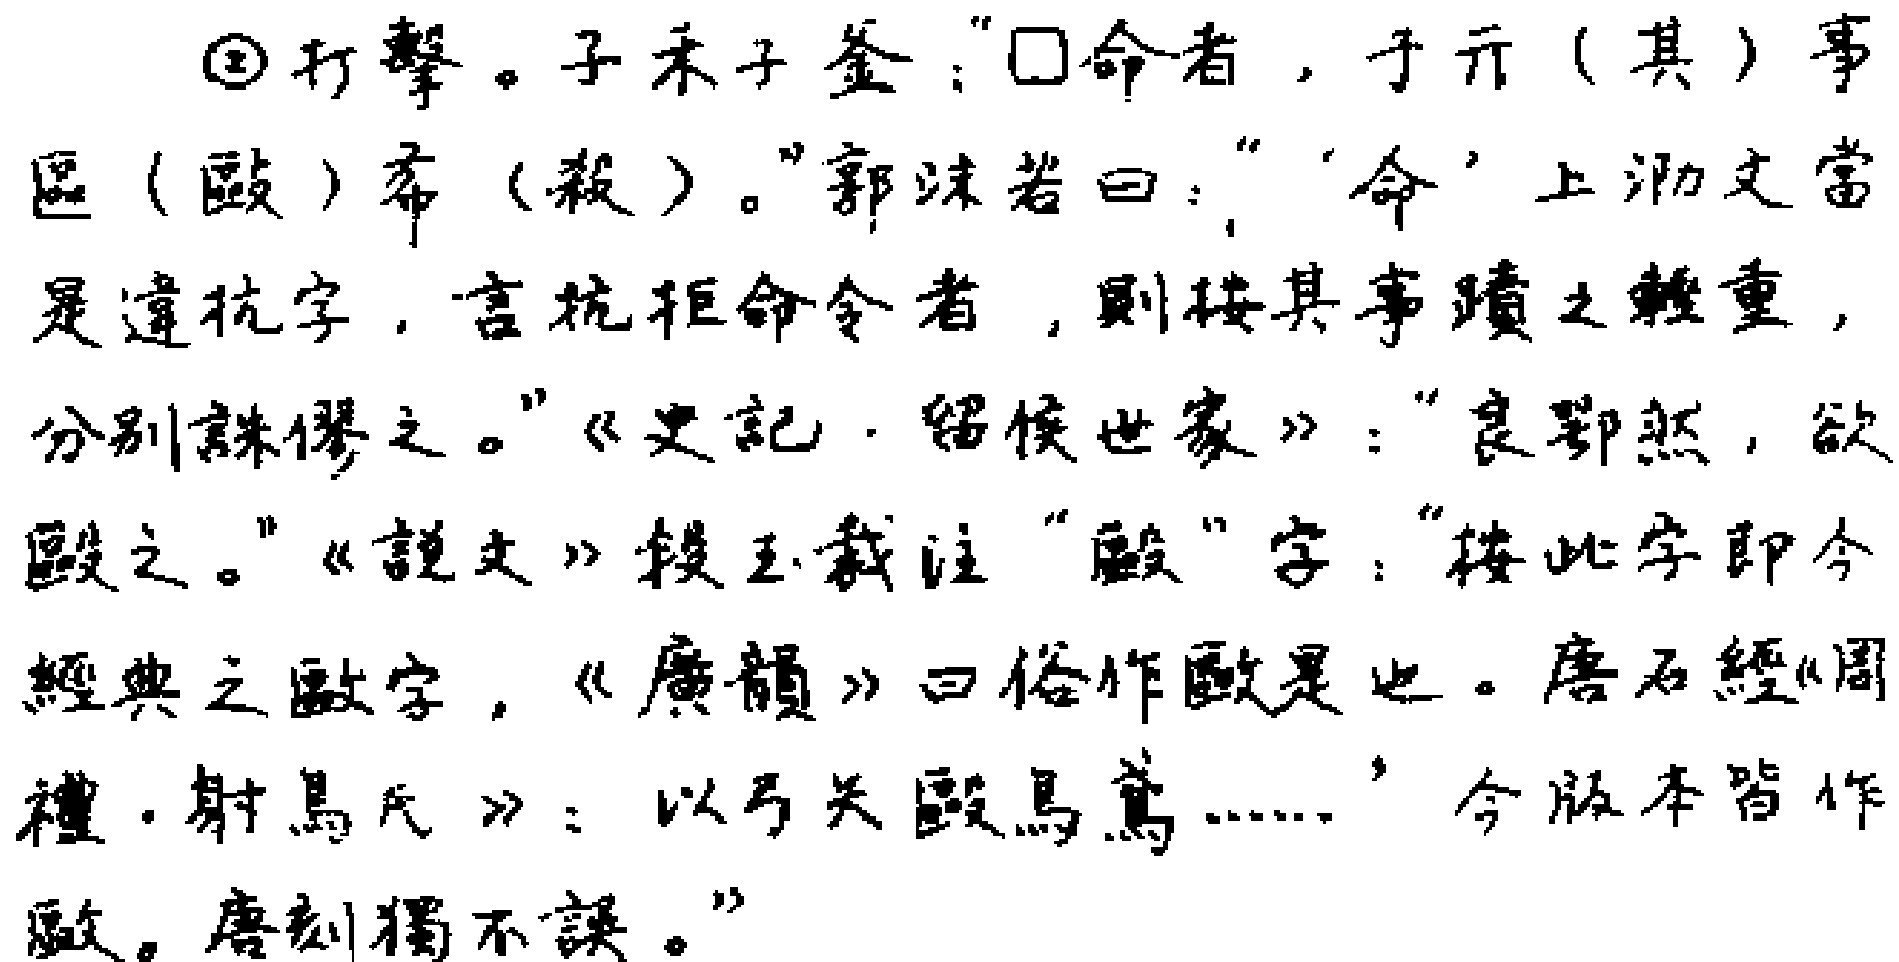 ②打擊。子禾子釜：“□命者，于亓（其）事
區（毆）𣏂（殺）。”郭沫若曰：“‘命’上泐文當
是違抗字，言抗拒命令者，則按其事蹟之輕重，
分別誅僇之。”《史記·留侯世家》：“良鄂然，欲
毆之。”《説文》段玉裁注“毆”字：“按此字即今
經典之敺字，《廣韻》曰俗作敺是也。唐石經《周
禮·射鳥氏》：以弓矢毆鳥鳶……’今版本皆作
敺。唐刻獨不誤。”